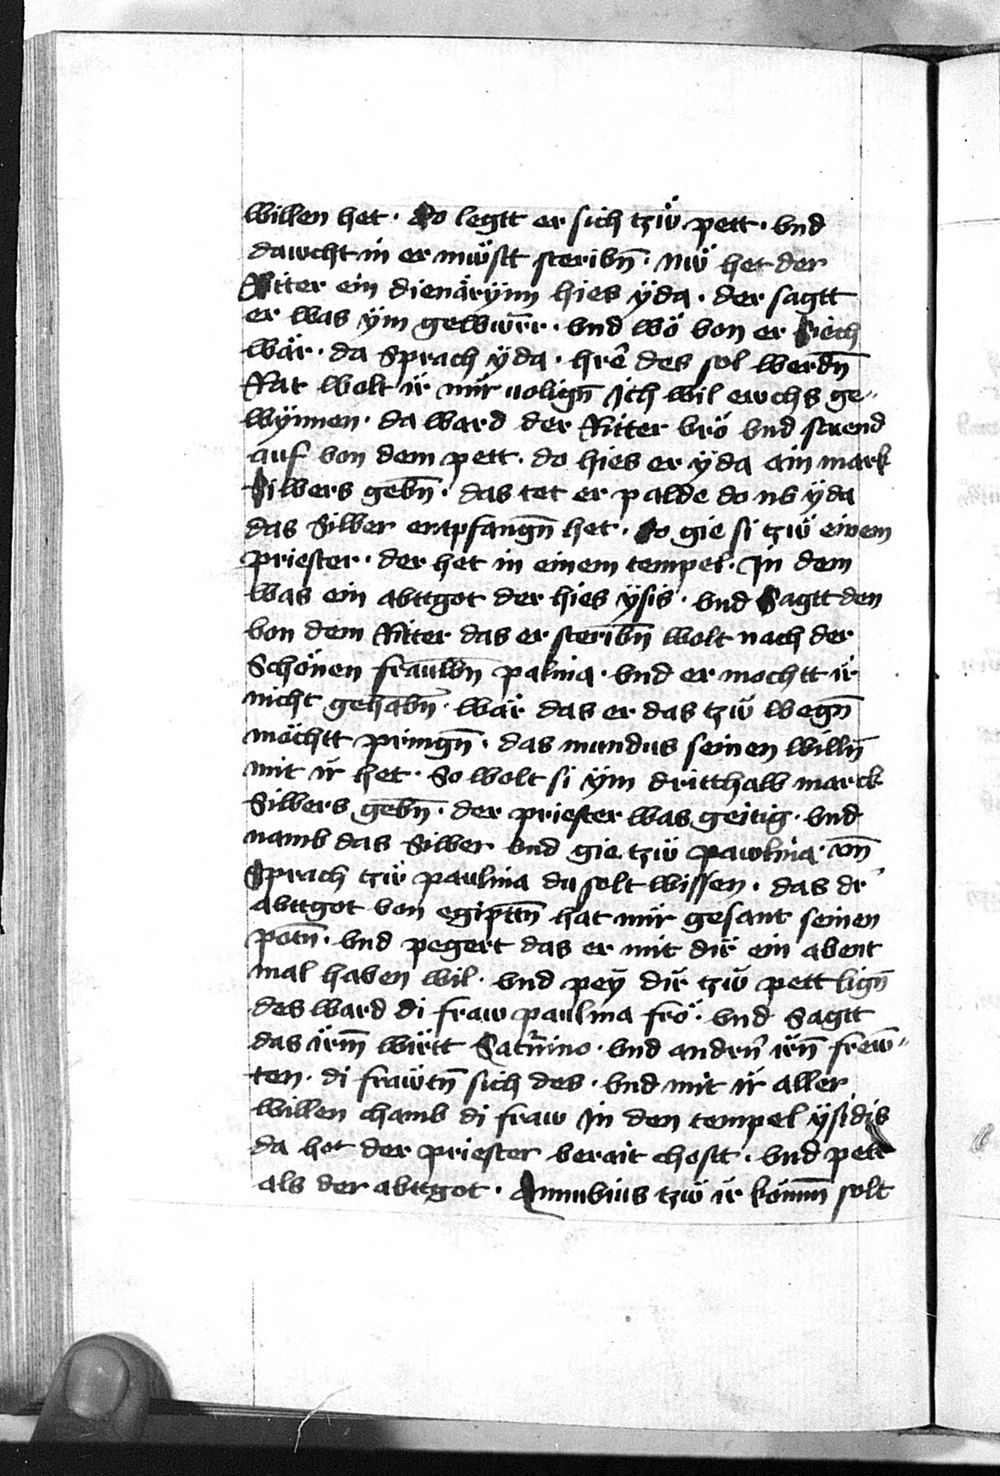 willen het · do legtt er sich tzẅ pett · vnd
dawcht in er mẅstt steribn̄ · nẅ het der
Ritter ein dienärÿnn hies ÿda · der sagtt
er was ÿm gewurr · vnd wö von er siech
wär · da Sprach ÿda · hrē des sol werdn̄
Rat wolt ir mir uolign̄ Ich wil ewchs ge-
wÿnnen · da ward der Ritter vrö vnd stuend
auf von dem pett · do hies er ÿda ain mark
Silbers gebn̄ · das tet er palde do nv ÿda
das Silber enpfangn̄ het · do gie si tzẅ einem
priester · der het in einem tempel · In dem
was ein abttgot der hies ÿsis · vnd Sagtt den
von dem Ritter das er steribn̄ wolt nach der
Schönen frauwn̄ palina · vnd er mochtt ir
nicht gehabn̄ · wär das er das tzẅ wegn̄
möchtt pringn̄ · das mundus seinen willn̄
mit ir het · So wolt si ÿm dritthalb marck
Silbers gebn̄ · der priester was geitig · vnd
namb das Silber vnd gie tzẅ pawlina · vn̄
Sprach tzẅ paulina du solt wissen · das dr̄
abttgot von egiptn̄ hat mir gesant seinen
potn̄ · vnd pegert das er mit dir ein abent
mal haben wil · vnd peÿ dir tzẅ pett lign̄
des ward di fraw paulina frö · vnd Sagtt
das irm̄ wirtt Saturnino · vnd andrn̄ irn̄ frew-
ten · di fräwtn̄ sich des · vnd mit ir aller
willen chamb di fraw In den tempel ÿsidis
da het der priester berait chostt · vnd pett
als der abttgot · Annubius tzẅ ir kömm̄ solt